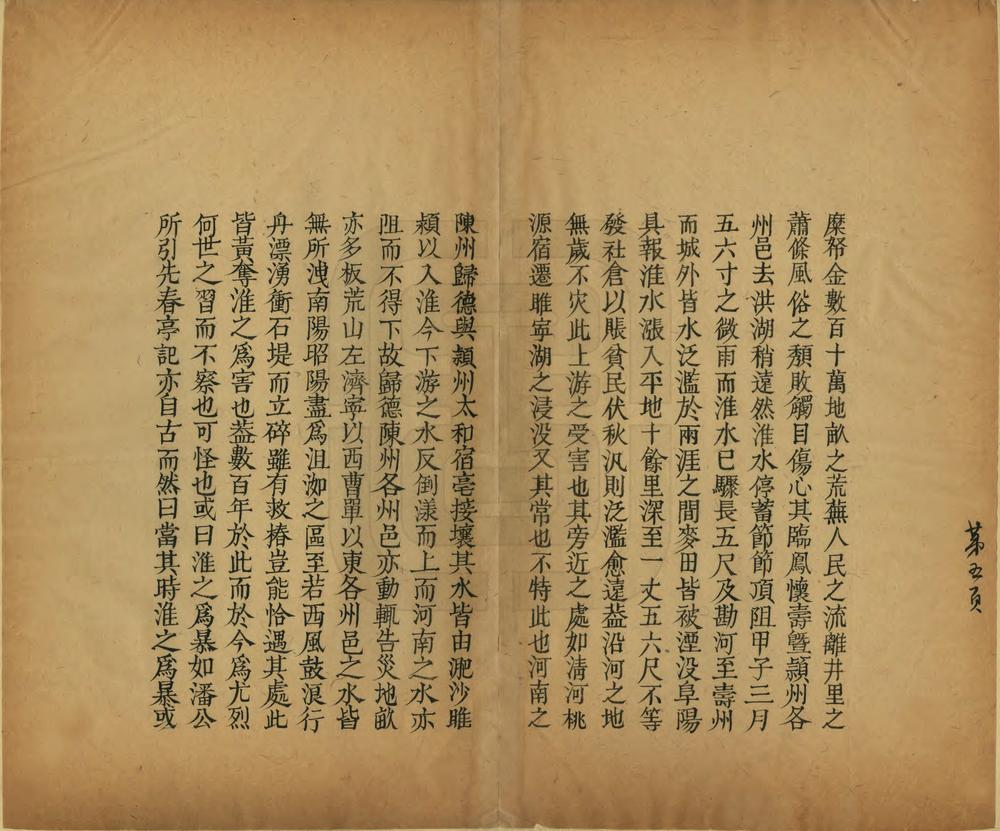 第五頁
糜帑金數百十萬地畝之荒蕪人民之流離井里之
蕭條風俗之頹敗觸目傷心其臨鳳懷壽曁潁州各
州邑去洪湖稍遠然淮水停蓄節節頂阻甲子三月
五六寸之微雨而淮水已驟長五尺及勘河至壽州
而城外皆水泛濫於兩涯之間麥田皆被湮没阜陽
具報淮水漲入平地十餘里深至一丈五六尺不等
發社倉以賑貧民伏秋汛則泛濫愈遠益沿河之地
無歲不灾此上游之受害也其旁近之處如清河桃
源宿遷睢寧湖之浸没又其常也不特此也河南之
陳州歸德與潁州太和宿亳接壤其水皆由淝沙睢
潁以入淮今下游之水反倒漾而上而河南之水亦
阻而不得下故歸德陳州各州邑亦動輒告災地畝
亦多板荒山左濟寧以西曹單以東各州邑之水皆
無所洩南陽昭陽盡爲沮洳之區至若西風鼓浪行
舟漂湧衝石堤而立碎雖有救椿豈能恰遇其處此
皆黃奪淮之爲害也葢數百年於此而於今爲尤烈
何世之習而不察也可怪也或曰淮之爲暴如潘公
所引先春亭記亦自古而然曰當其時淮之爲暴或